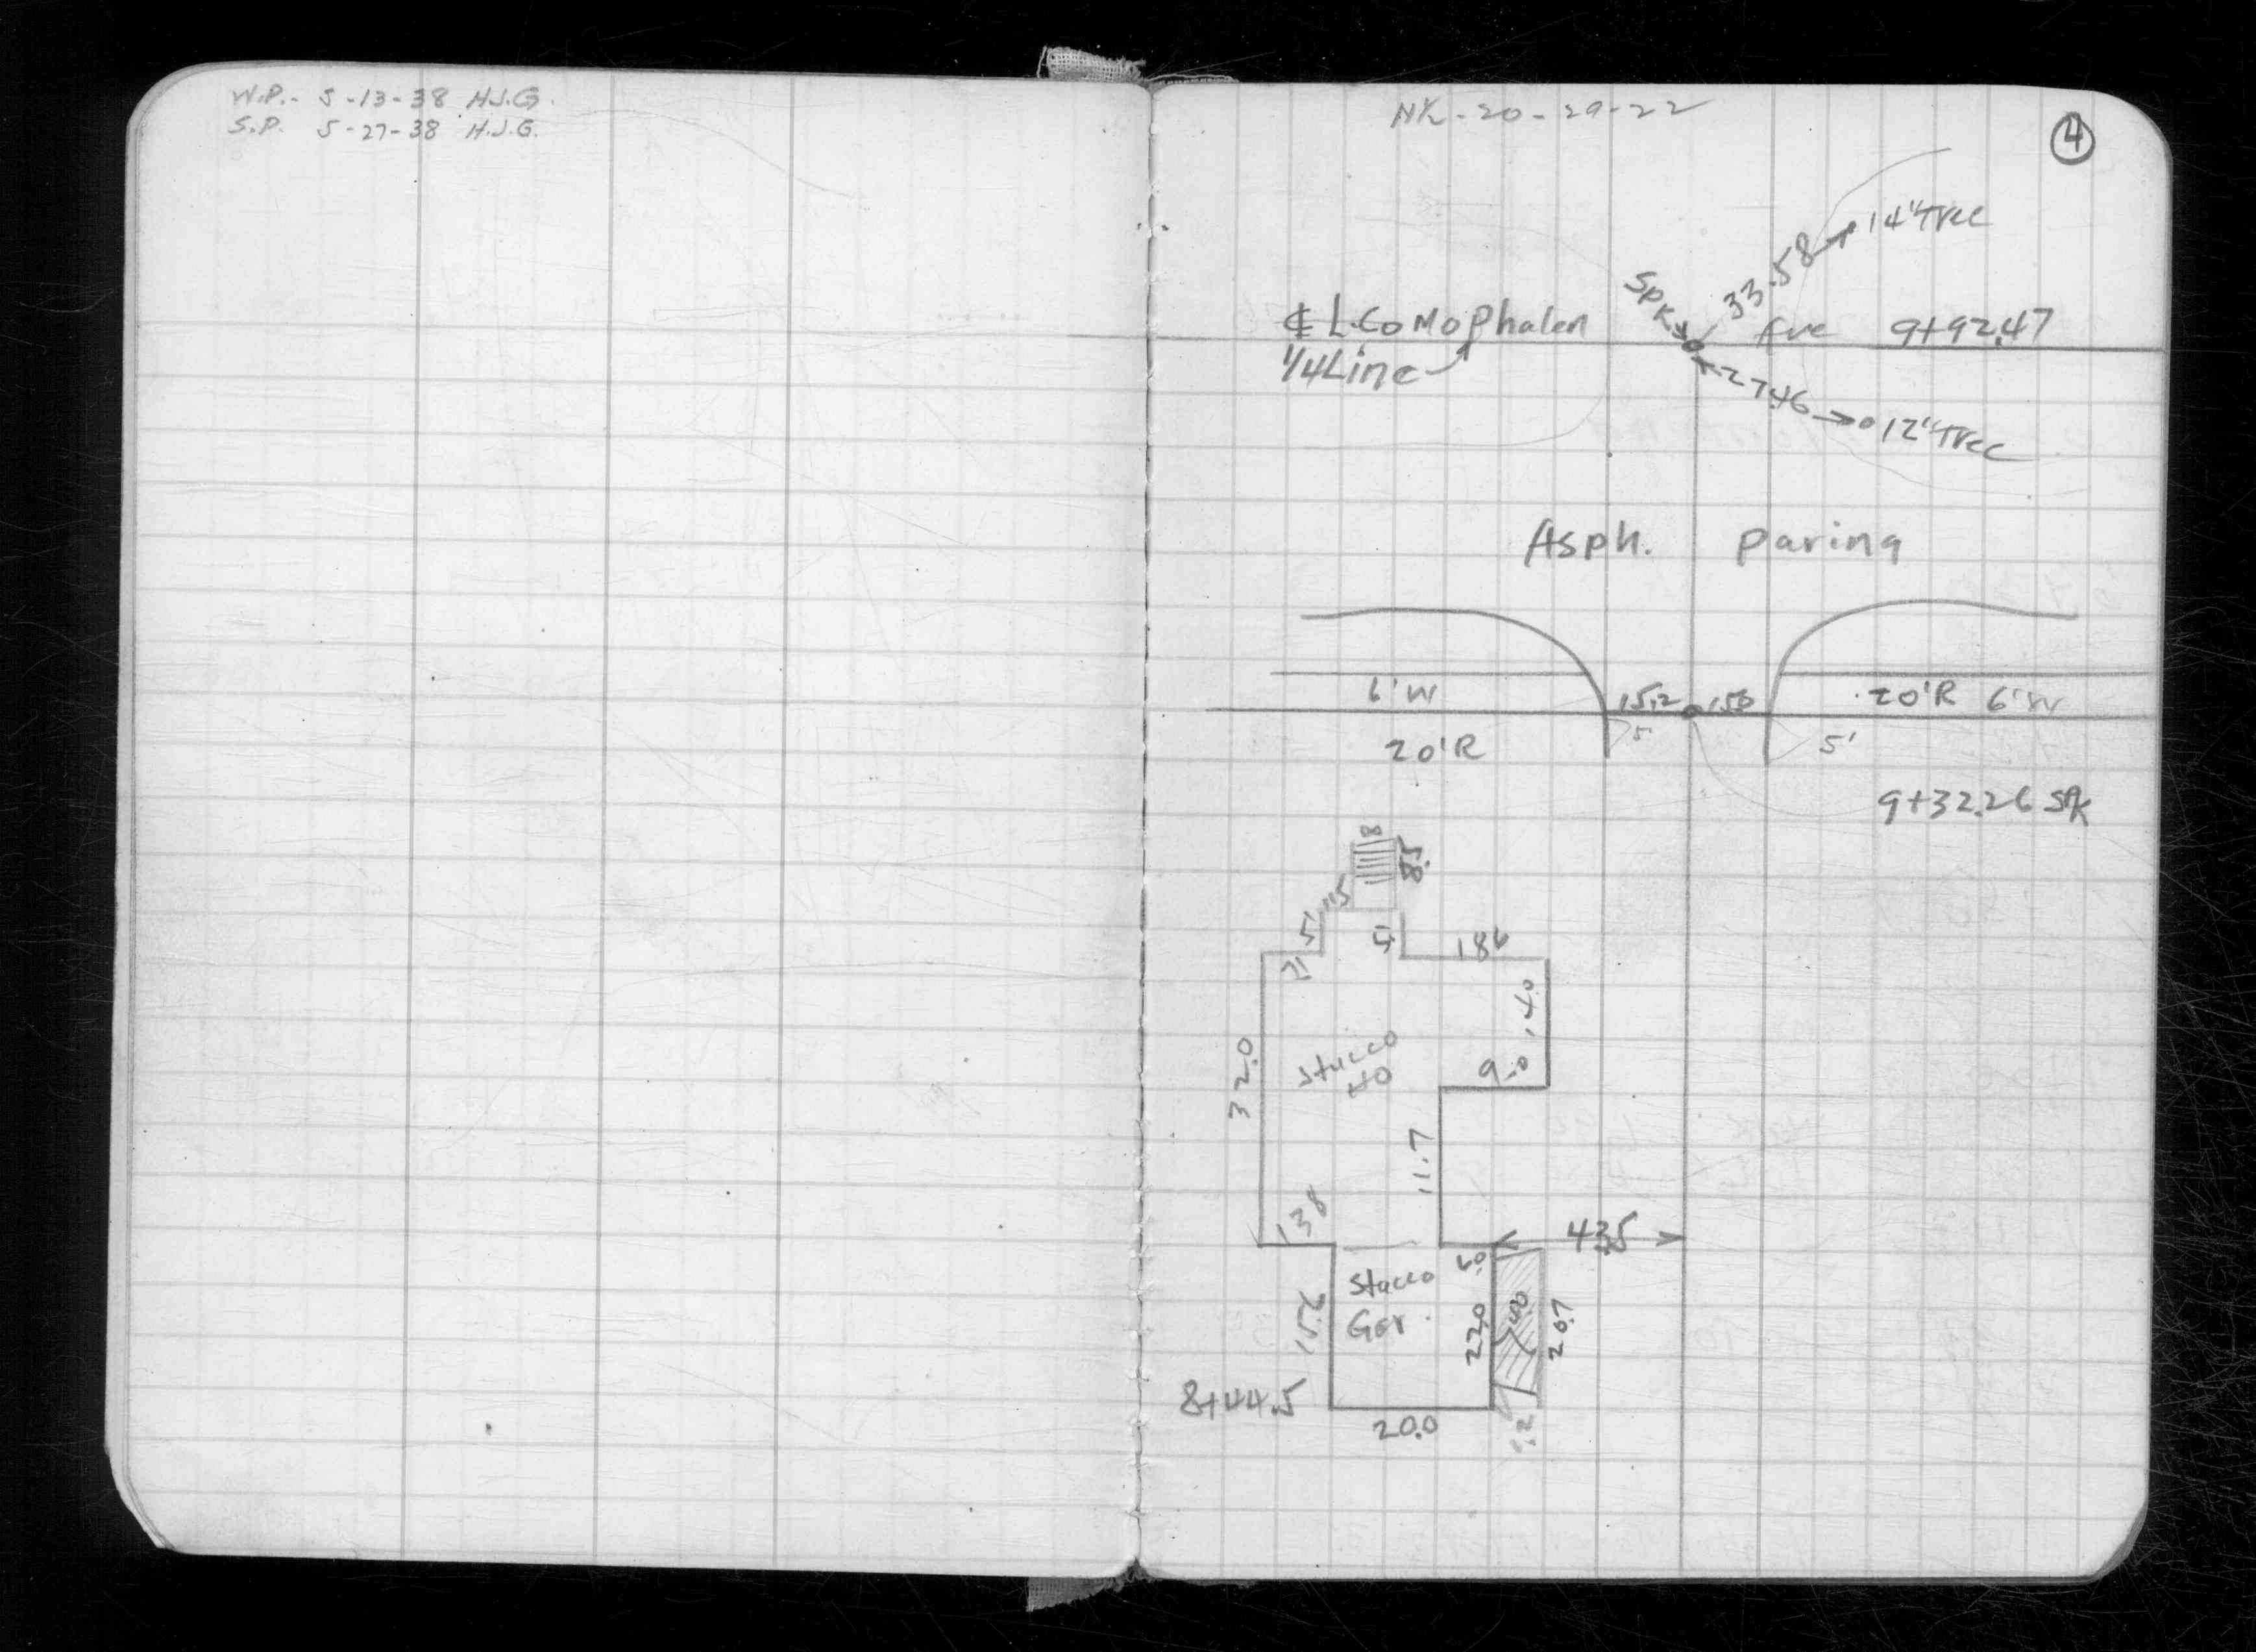 W.P.- 5-13-38 H.J.G.
S.P. 5-27-38 H.J.G.
N½-20-29-22
4
14"Tree
33.58
Spk
℄ L.CoMoPhalen Ave 9+92.47
1/4Line
27.46
12"Tree
Asph. Paving
6'W 15.2 15.0 20'R 6'W
20'R 5' 5'
9+32.26 Spk
8
8.5
11.5
5' 5'
7' 18.6
14.0
Stucco
HO
9.0
32.0
11.7
13.8 43.5
Stucco 6.0
Gar.
15.6 22.0 4.0 20.7
8+44.5
20.0